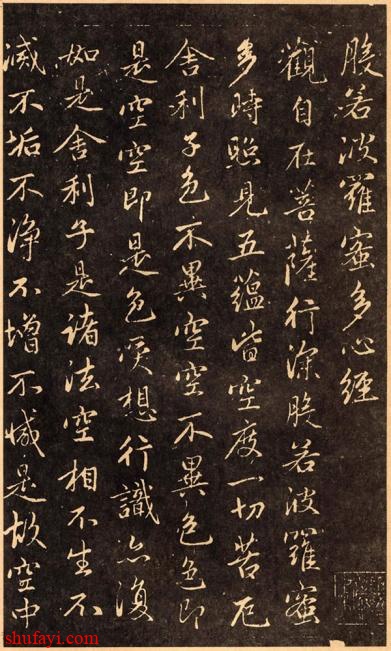 般若波羅蜜多心經
觀自在菩薩行深般若波羅蜜
多時照見五蘊皆空度一切苦厄
舍利子色不異空空不異色色即
是空空即是色受想行識亦復
如是舍利子是諸法空相不生不
滅不垢不淨不增不減是故空中
shufayi.com